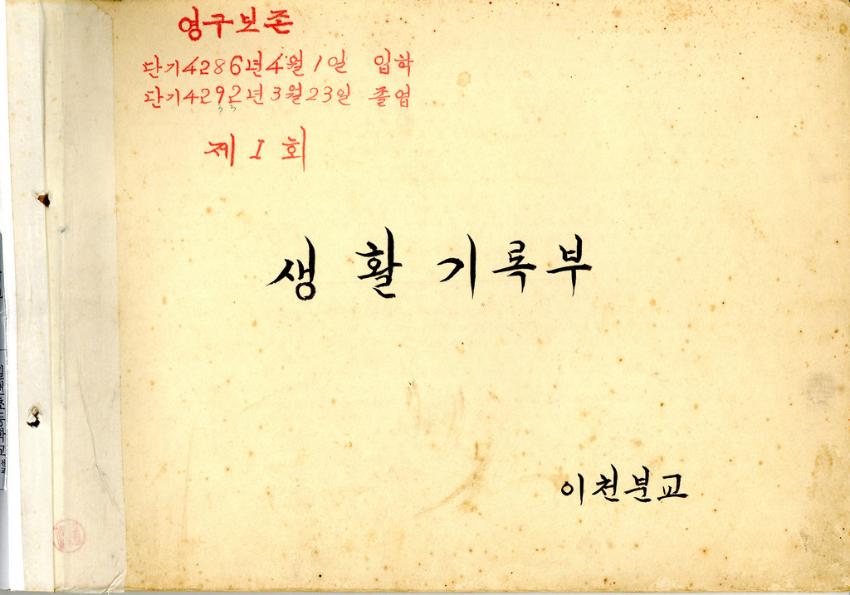 영구보존
단기4286년4월1일 입학
단기4292년3월23일 졸업
제1회
생활기록부
이천분교